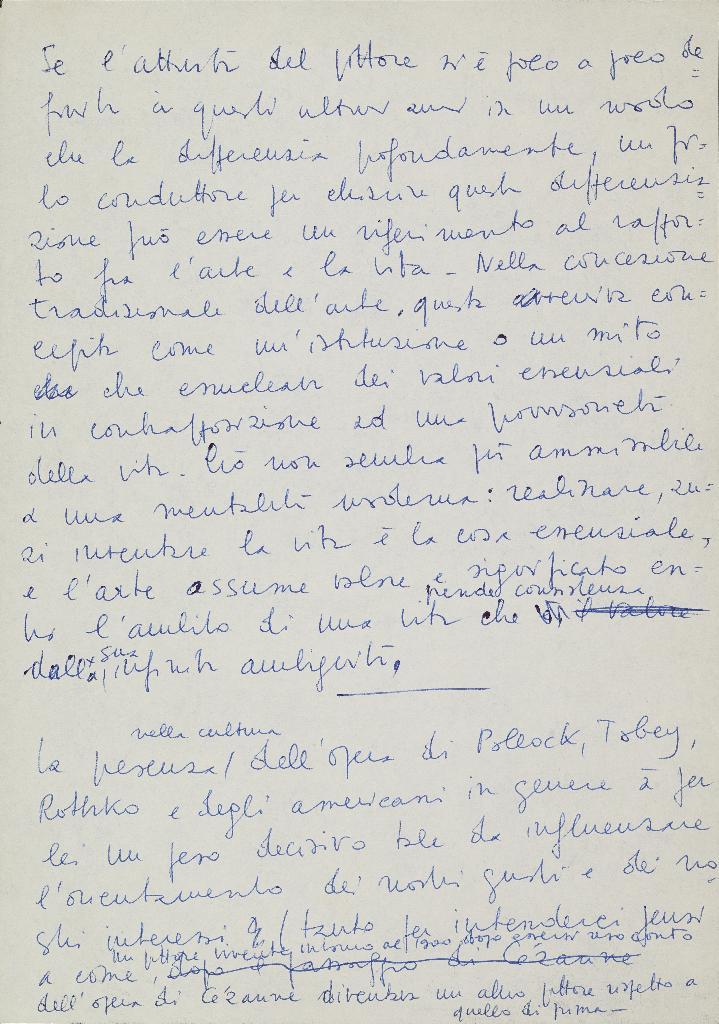 Se l'attività del pittore si è poco a poco de=
finita in questi ultimi anni in un modo
che la differenzia profondamente, un fi=
lo conduttore per chiarire questa differenzia=
zione può essere un riferimento al rappor=
to fra l'arte e la vita - Nella concezione
tradizionale dell'arte, questa veniva con=
cepita come un'istituzione o un mito
che enucleava dei valori essenziali
in contrapposizione ad una provvisorietà
della vita. Ciò non sembra più ammissibile
a una mentalità moderna: realizzare, an=
zi inventare la vita è la cosa essenziale,
e l'arte assume valore e significato en=
prende consistenza
tro l'ambito di una vita che il valore
dalla sua infinita ambiguità.
nella cultura
La presenza / dell'opera di Pollock, Tobey,
Rothko e degli americani in genere à per
lei un peso decisivo tale da influenzare
l'orientamento dei nostri gusti e dei no
stri interessi? / tanto per intenderci pensi
un pittore vivente intorno al 1900 dopo essersi reso conto
a come, dopo il passaggio di Cézanne
dell'opera di Cézanne diventava un altro pittore rispetto a
quello di prima -